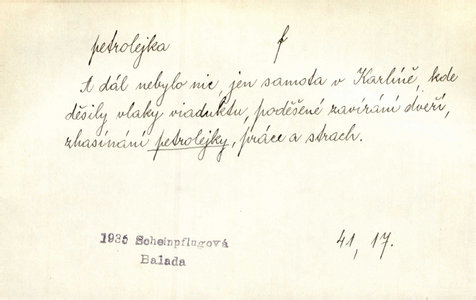 petrolejka f
A dál nebylo nic, jen samota v Karlíně, kde
děsily vlaky viaduktu, poděšené zavírání dveří,
zhasínání petrolejky, práce a strach.
1935 Scheinpflugová
Balada
41, 17.